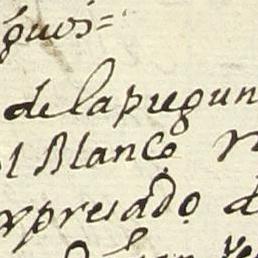 guos=
de la pregun
l Blanco
xpresado d